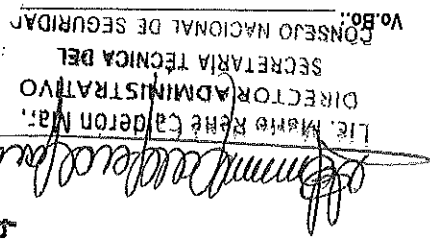 Lic. Mario René Calderón Mar.
DIRECTOR ADMINISTRATIVO
SECRETARÍA TÉCNICA DEL
CONSEJO NACIONAL DE SEGURIDAD
Vo.Bo.: